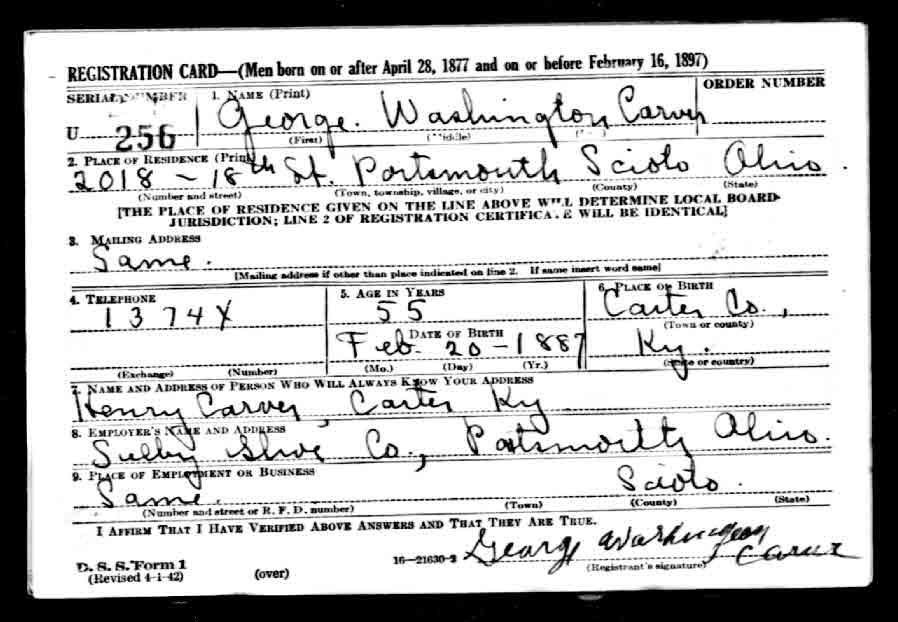 REGISTRATION CARD—(Men born on or after April 28, 1877 and on or before February 16, 1897)
SERIAL NUMBER 1. NAME (Print) ORDER NUMBER
U 256 George. Washington Carver
(First) (Middle)
2. PLACE OF RESIDENCE (Print)
2018 - 18th St. Portsmouth Scioto Ohio.
(Number and street) (Town, township, village, or city) (County) (State)
[THE PLACE OF RESIDENCE GIVEN ON THE LINE ABOVE WILL DETERMINE LOCAL BOARD
JURISDICTION; LINE 2 OF REGISTRATION CERTIFICATE WILL BE IDENTICAL]
3. MAILING ADDRESS
Same.
[Mailing address if other than place indicated on line 2. If same insert word same]
4. TELEPHONE 5. AGE IN YEARS 6. PLACE OF BIRTH
1374X 55 Carter Co.,
(Town or county)
DATE OF BIRTH
Feb. 20-1887 Ky.
(Exchange) (Number) (Mo.) (Day) (Yr.) (State or country)
7. NAME AND ADDRESS OF PERSON WHO WILL ALWAYS KNOW YOUR ADDRESS
Henry Carver, Carter Ky
8. EMPLOYER'S NAME AND ADDRESS
Selby Shoe Co., Portsmouth Ohio.
9. PLACE OF EMPLOYMENT OR BUSINESS
Same. Scioto.
(Number and street or R. F. D. number) (Town) (County) (State)
I AFFIRM THAT I HAVE VERIFIED ABOVE ANSWERS AND THAT THEY ARE TRUE.
George Washington Carver
D. S. S. Form 1 16—21630-2 (Registrant's signature)
(Revised 4-1-42) (over)